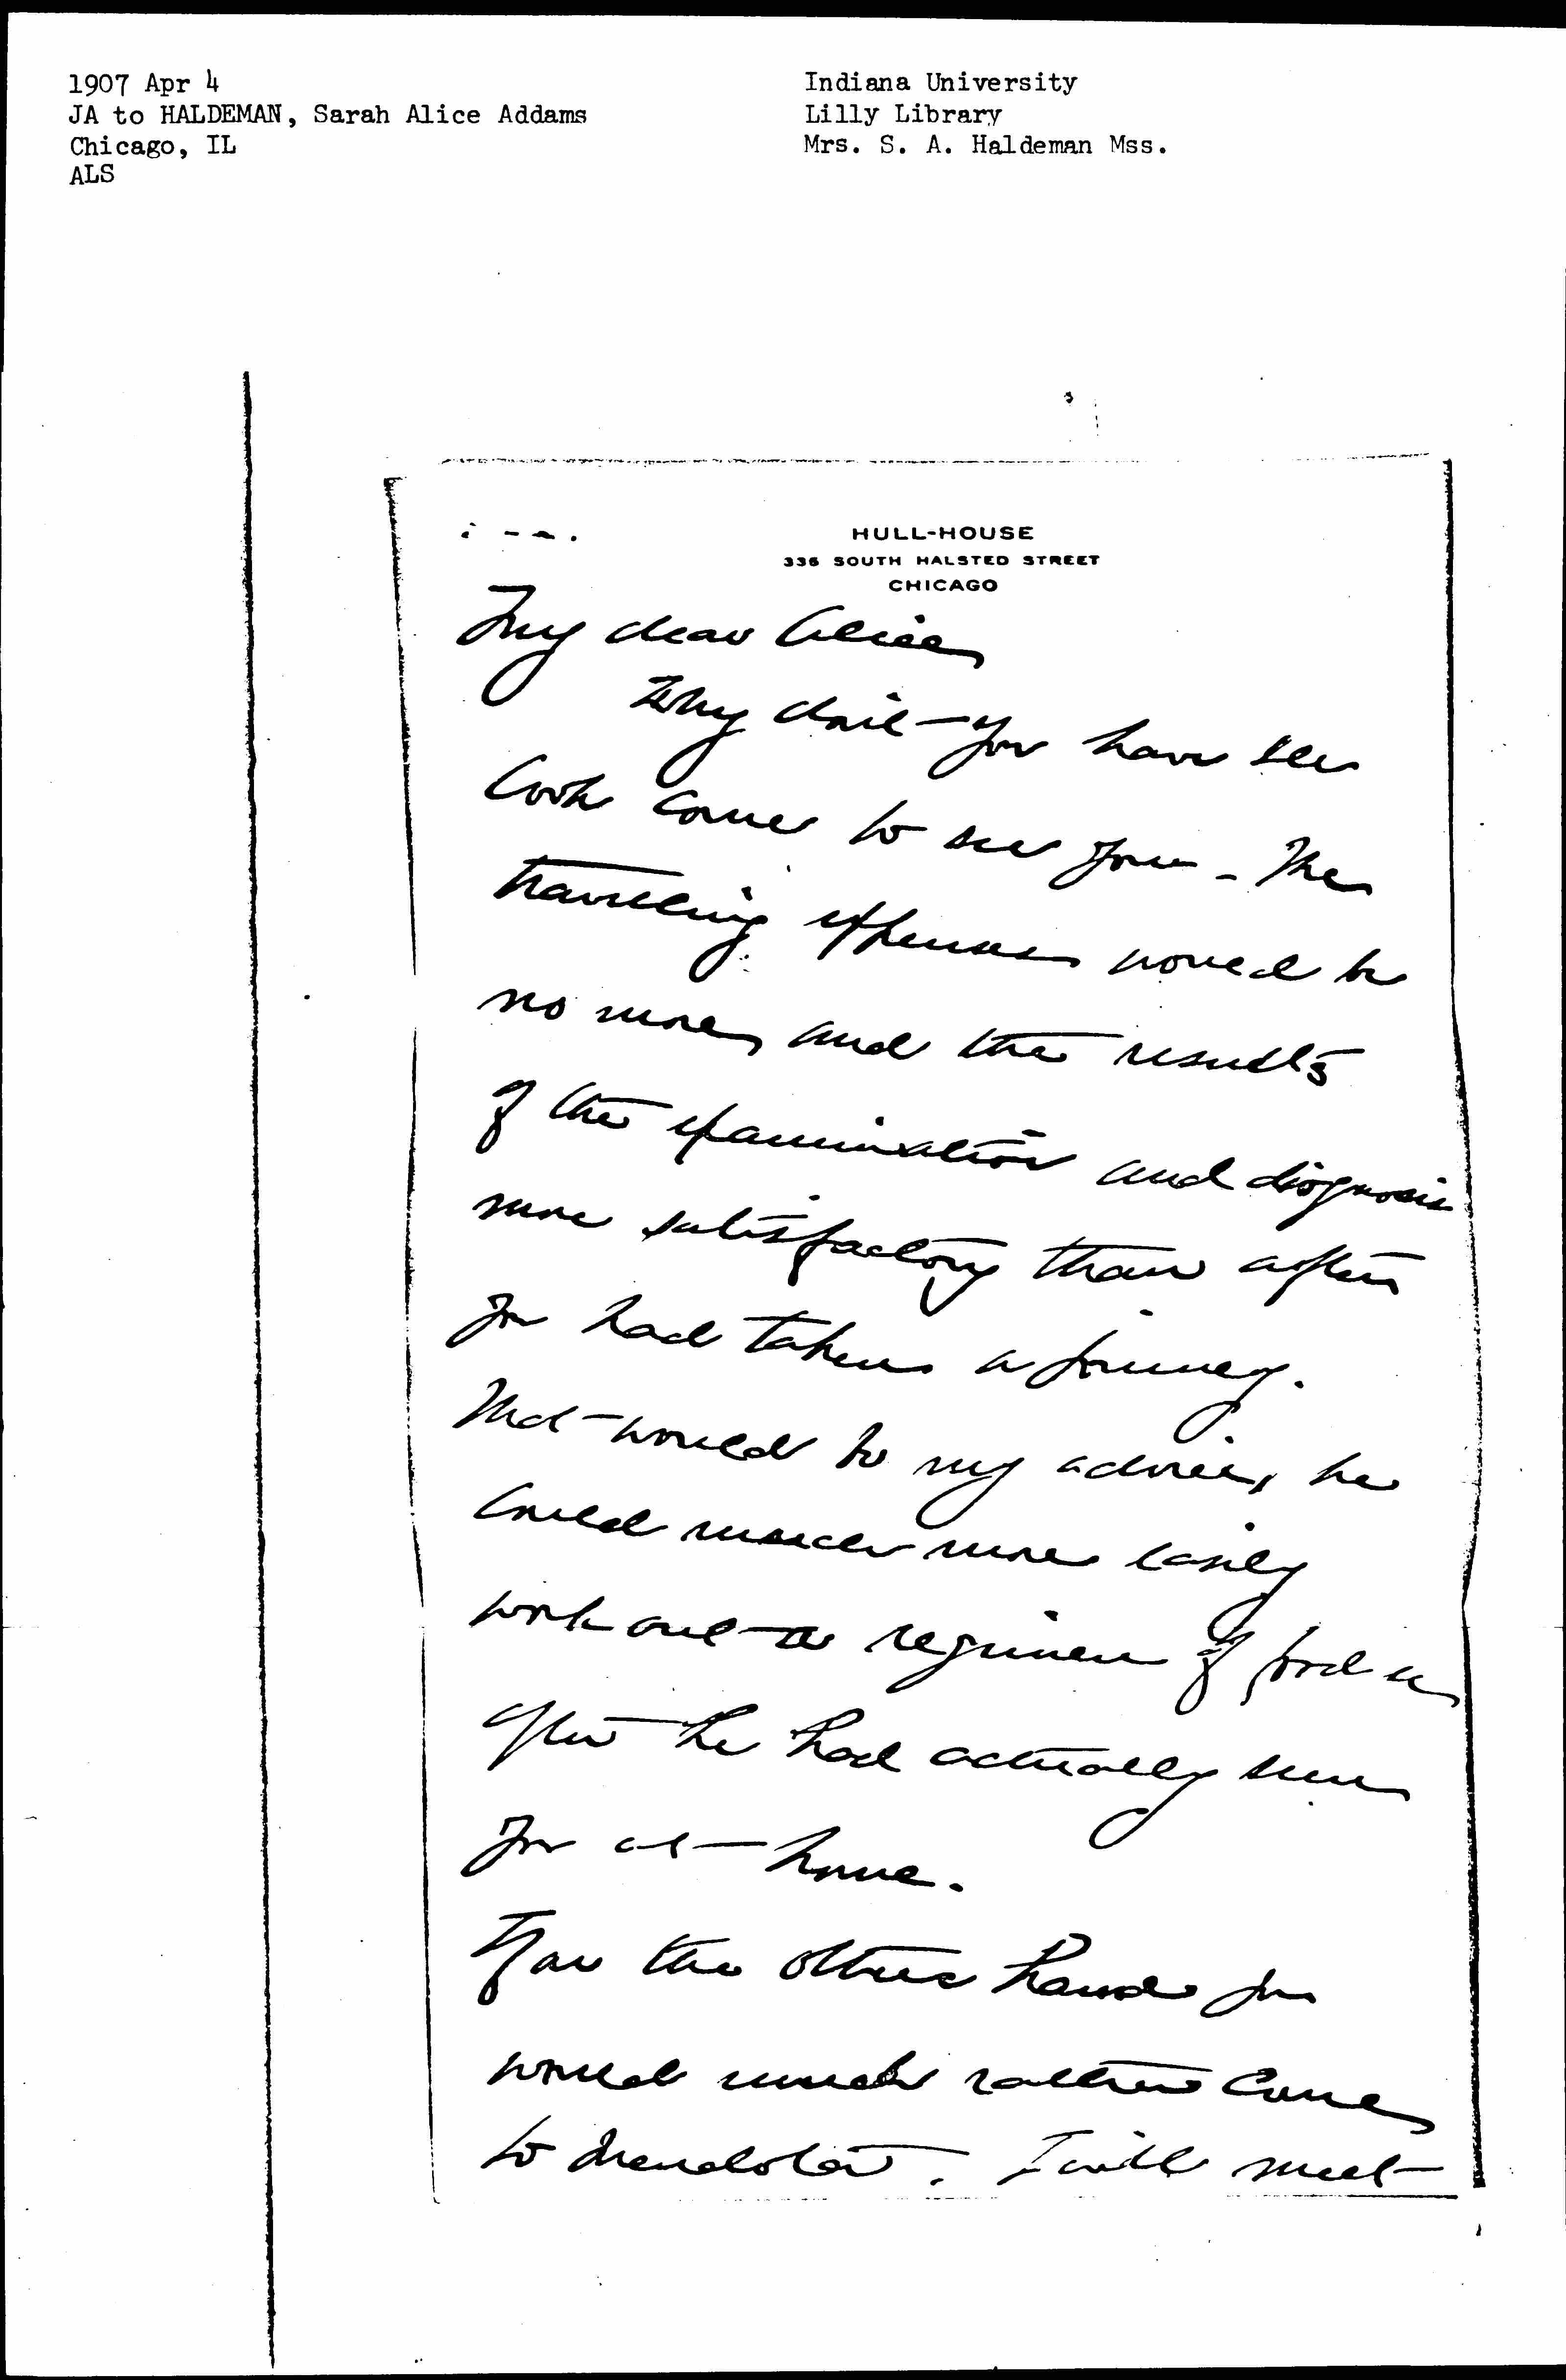 1907 Apr 4
JA to HALDEMAN, Sarah Alice Addams
Chicago, IL
ALS
Indiana University
Lilly Library
Mrs. S. A. Haldeman Mss.
HULL-HOUSE
335 SOUTH HALSTED STREET
CHICAGO
My dear Alice
Why don't you have
Cook come to see you - The
travelling expenses would be
no more, and the results
of the examination and diagnosis
more satisfactory than after
you had taken a journey.
That would be my advice, he
could much more easily
work out a regimen of food
after he had actually seen
you at home.
If on the other hand you
would much rather come
to Mendota. I will meet